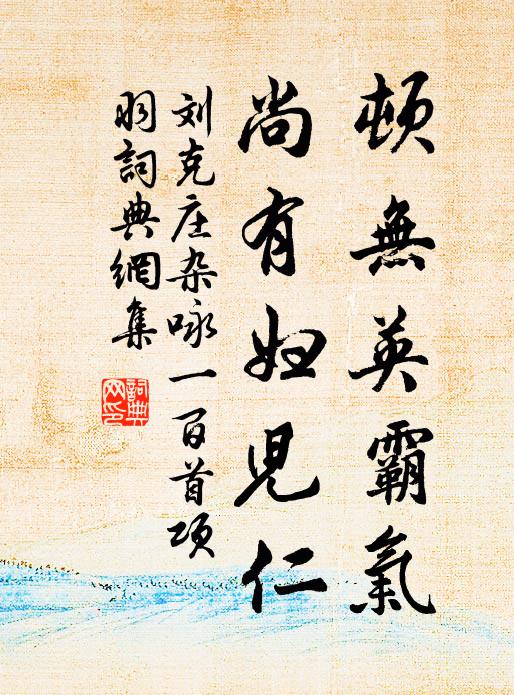 頓無英霸氣
尚有妇兒仁
刘克庄杂咏一百首项
羽詞典網集
詞典
网印